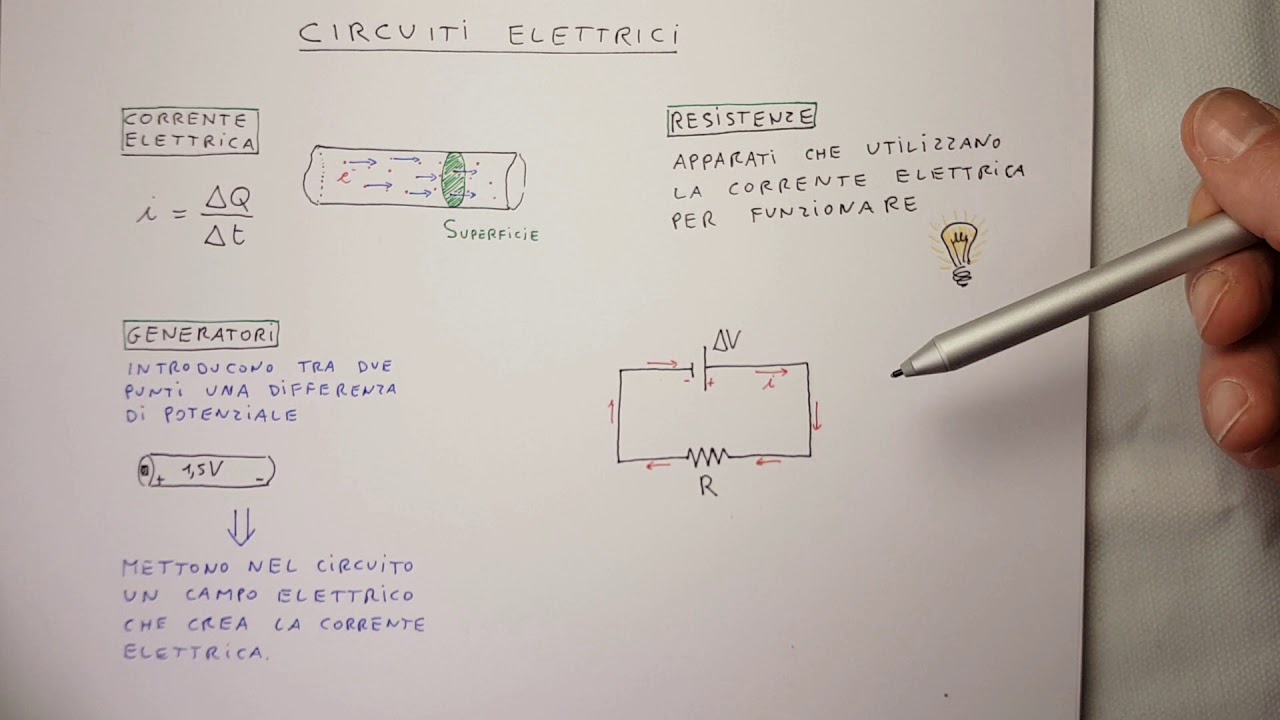 CIRCUITI ELETTRICI
CORRENTE
ELETTRICA
i = ΔQ/Δt
e⁻
SUPERFICIE
RESISTENZE
APPARATI CHE UTILIZZANO
LA CORRENTE ELETTRICA
PER FUNZIONARE
GENERATORI
INTRODUCONO TRA DUE
PUNTI UNA DIFFERENZA
DI POTENZIALE
+ 1,5V -
METTONO NEL CIRCUITO
UN CAMPO ELETTRICO
CHE CREA LA CORRENTE
ELETTRICA.
ΔV
- +
i
R